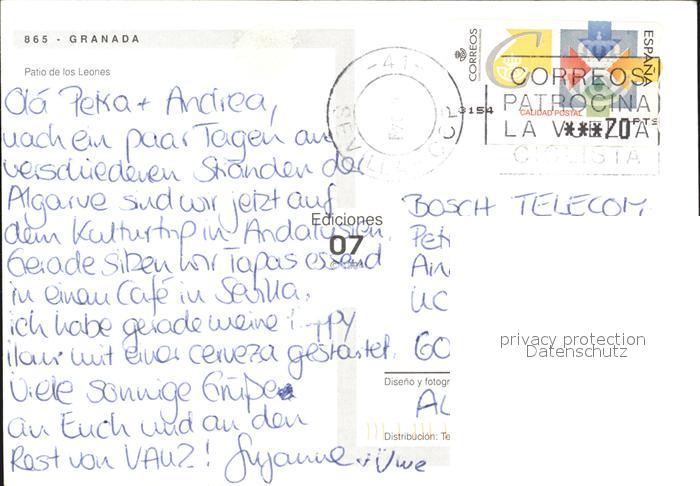 865 - GRANADA
Patio de los Leones
Olá Petra + Andrea,
nach ein paar Tagen an
verschiedenen Stränden der
Algarve sind wir jetzt auf
dem Kulturtrip in Andalusien.
Gerade sitzen wir Tapas essend
in einem Café in Sevilla,
ich habe gerade meine
mit einer cerveza gestartet.
Viele sonnige Grüße
an Euch und an den
Rest von VAU2! Susanne + Uwe
Ediciones
07
CORREOS
ESPAÑA
CALIDAD POSTAL
3154
***70 PTS
-41-
SEVILLA
CORREOS
PATROCINA
LA VUELTA
CICLISTA
BOSCH TELECOM
Pet
UC
GO
Diseño y fotogr
AL
Distribución: Te
privacy protection
Datenschutz